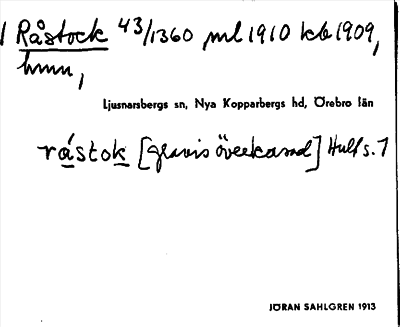 1 Råstock 43/1360 ml 1910 kb 1909,
hmn,
Ljusnarsbergs sn, Nya Kopparbergs hd, Örebro län
råstok [gravis överkorsad] Hult s. 7
JÖRAN SAHLGREN 1913